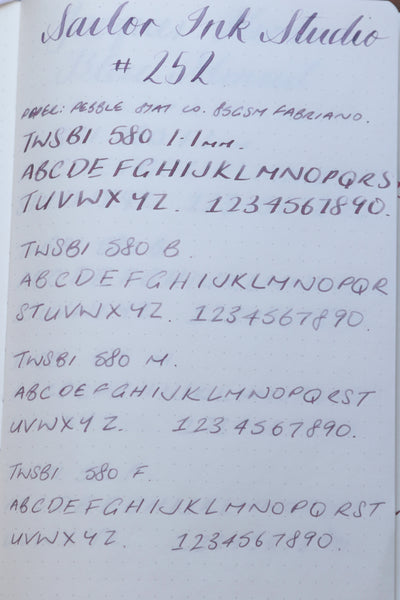 Sailor Ink Studio
# 252
PAPER: PEBBLE STAT CO. 85GSM FABRIANO.
TWSBI 580 1.1mm.
ABCDEFGHIJKLMNOPQRS
TUVWXYZ. 1234567890.
TWSBI 580 B
ABCDEFGHIJKLMNOPQR
STUVWXYZ. 1234567890.
TWSBI 580 M.
ABCDEFGHIJKLMNOPQRST
UVWXYZ. 1234567890.
TWSBI 580 F.
ABCDEFGHIJKLMNOPQRST
UVWXYZ. 1234567890.